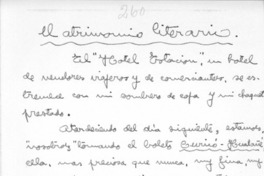 260
Matrimonio literario.
El "Hotel Estación", un hotel
de vendedores viajeros y de comerciantes, se es-
tremece con mi sombrero de copa y mi chaquet
prestado.
Atardeciendo del día siguiente, estamos
"nosotros" tomando el boleto Curicó-
ella, mas preciosa que nunca, muy fina, muy